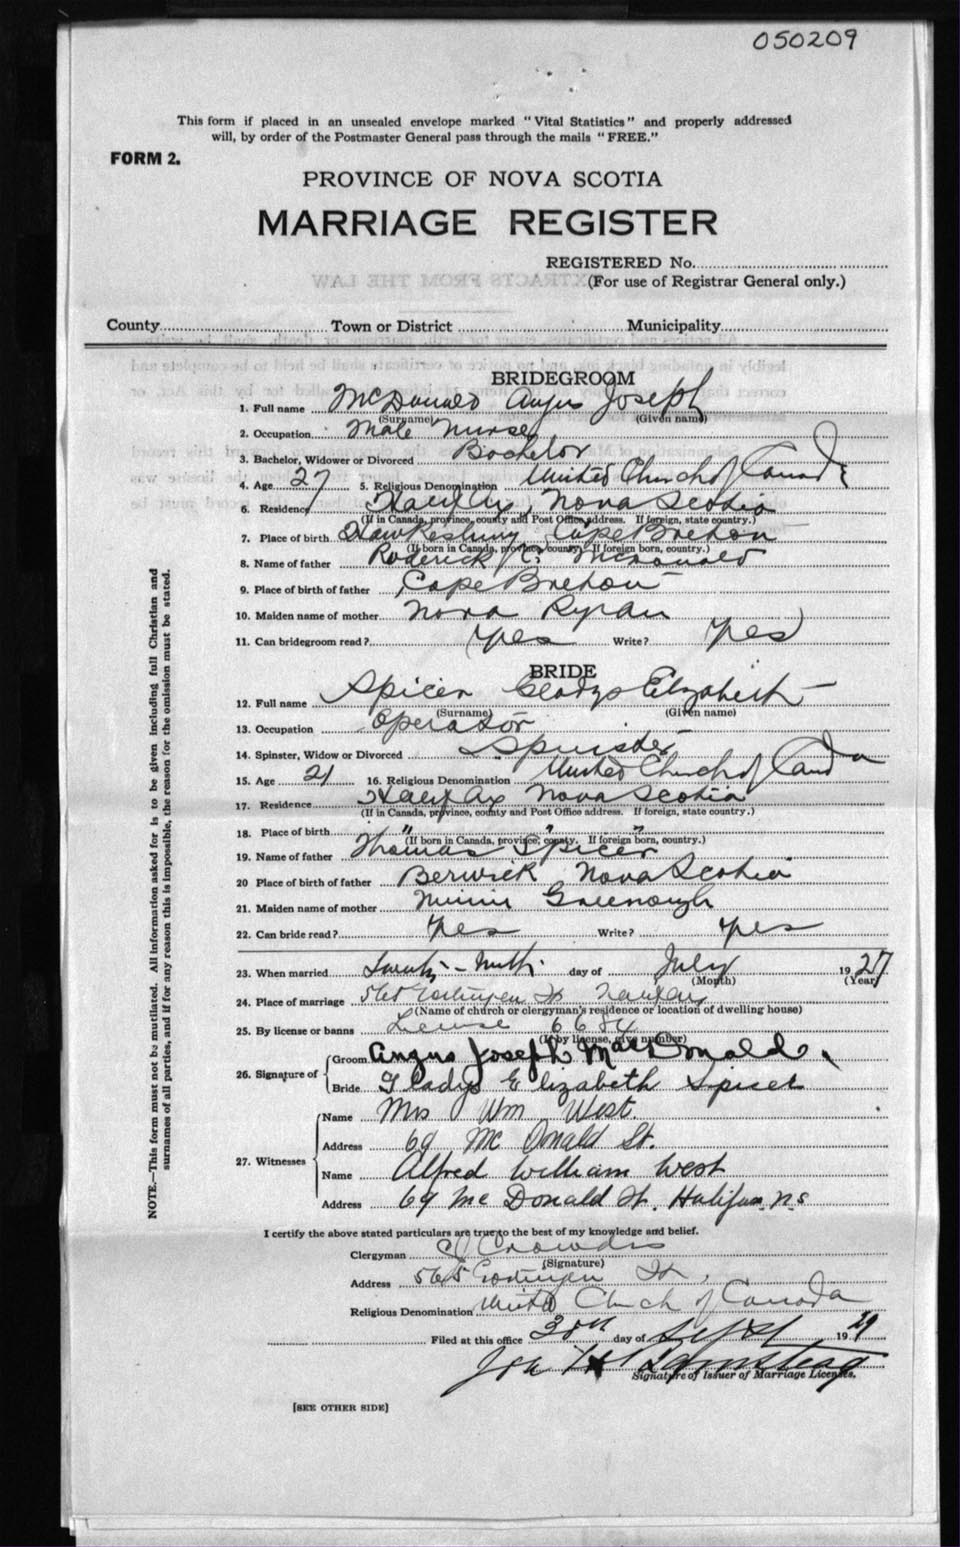 050209
This form if placed in an unsealed envelope marked "Vital Statistics" and properly addressed
will, by order of the Postmaster General pass through the mails "FREE."
FORM 2.
PROVINCE OF NOVA SCOTIA
MARRIAGE REGISTER
REGISTERED No.
(For use of Registrar General only.)
County Town or District Municipality
BRIDEGROOM
1. Full name McDonald Angus Joseph
(Surname) (Given name)
2. Occupation Male Nurse
3. Bachelor, Widower or Divorced Bachelor
4. Age 27 5. Religious Denomination United Church of Canada
6. Residence Halifax, Nova Scotia
(If in Canada, province, county and Post Office address. If foreign, state country.)
7. Place of birth Cape Breton
(If born in Canada, province, county. If foreign born, country.)
8. Name of father Roderick McDonald
9. Place of birth of father Cape Breton
10. Maiden name of mother Nora
11. Can bridegroom read? yes Write? yes
BRIDE
12. Full name Spicer Gladys Elizabeth
(Surname) (Given name)
13. Occupation Operator
14. Spinster, Widow or Divorced Spinster
15. Age 21 16. Religious Denomination United Church of Canada
17. Residence Halifax Nova Scotia
(If in Canada, province, county and Post Office address. If foreign, state country.)
18. Place of birth " " "
(If born in Canada, province, county. If foreign born, country.)
19. Name of father Thomas Spicer
20 Place of birth of father Berwick Nova Scotia
21. Maiden name of mother Minnie Greenough
22. Can bride read? yes Write? yes
23. When married day of July 1927
(Month) (Year)
24. Place of marriage 565 Gottingen St Halifax
(Name of church or clergyman's residence or location of dwelling house)
25. By license or banns License 6684
(If by license, give number)
26. Signature of
Groom Angus Joseph MacDonald
Bride Gladys Elizabeth Spicer
27. Witnesses
Name Mrs Wm West
Address 69 McDonald St.
Name Alfred William West
Address 69 McDonald St. Halifax N.S
I certify the above stated particulars are true to the best of my knowledge and belief.
Clergyman
(Signature)
Address 565 Gottingen St,
Religious Denomination United Church of Canada
Filed at this office 30th day of Sept 1929
Signature of Issuer of Marriage Licenses.
[SEE OTHER SIDE]
NOTE.—This form must not be mutilated. All information asked for is to be given including full Christian and
surnames of all parties, and if for any reason this is impossible, the reason for the omission must be stated.